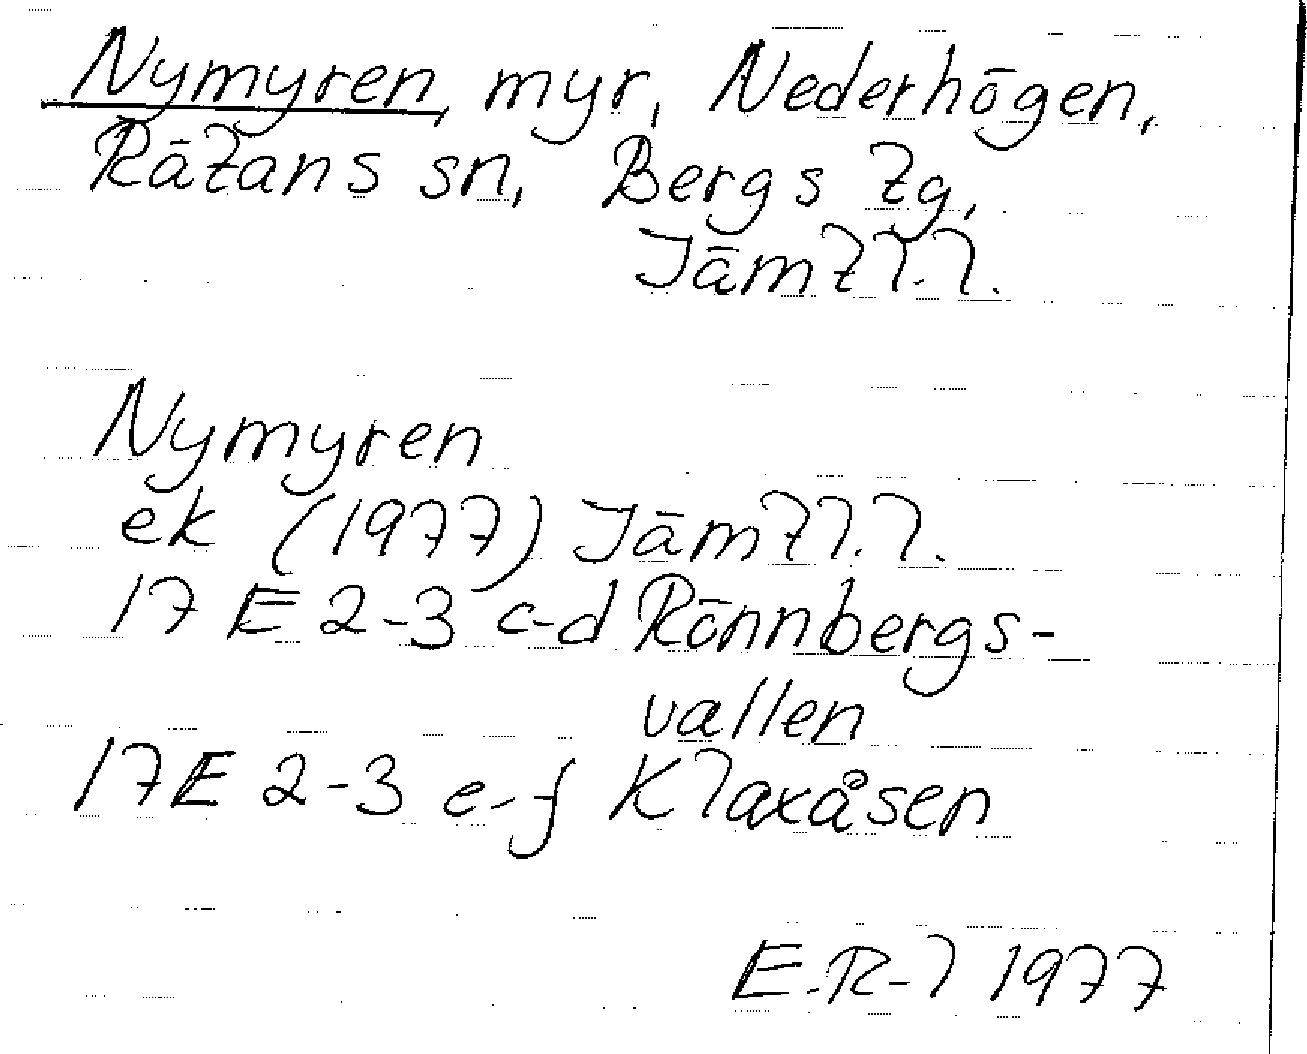 Nymyren, myr, Nederhögen,
Rätans sn, Bergs tg,
Jämtl.l.
Nymyren
ek (1977) Jämtl.l.
17 E 2-3 c-d Rönnbergs-
vallen
17E 2-3 e-f Klaxåsen
E.R-l 1977